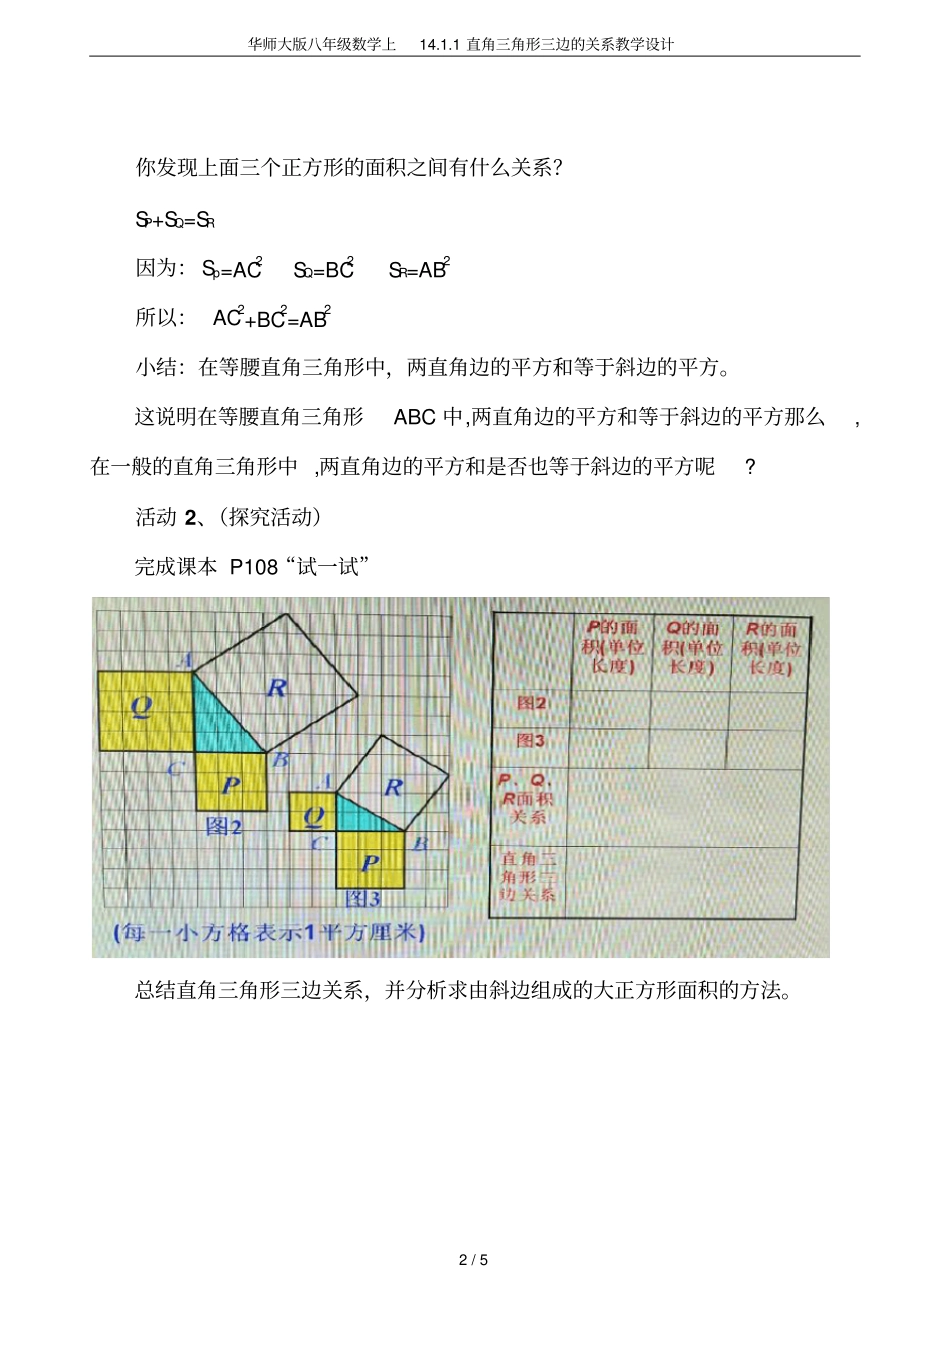 华师大版八年级数学上 14.1.1 直角三角形三边的关系教学设计
你发现上面三个正方形的面积之间有什么关系？
SP+SQ=SR
因为：Sp=AC² SQ=BC² SR=AB²
所以： AC²+BC²=AB²
小结：在等腰直角三角形中，两直角边的平方和等于斜边的平方。
这说明在等腰直角三角形 ABC 中,两直角边的平方和等于斜边的平方那么 ,
在一般的直角三角形中 ,两直角边的平方和是否也等于斜边的平方呢 ?
活动 2、（探究活动）
完成课本 P108 “试一试”
A
Q
R
C
B
P
图2
A
R
Q
C
B
P
图3
(每一小方格表示1平方厘米)
P的面积(单位长度)
Q的面积(单位长度)
R的面积(单位长度)
图2
图3
P、Q、
R面积
关系
直角三
角形三
边关系
总结直角三角形三边关系，并分析求由斜边组成的大正方形面积的方法。
2 / 5